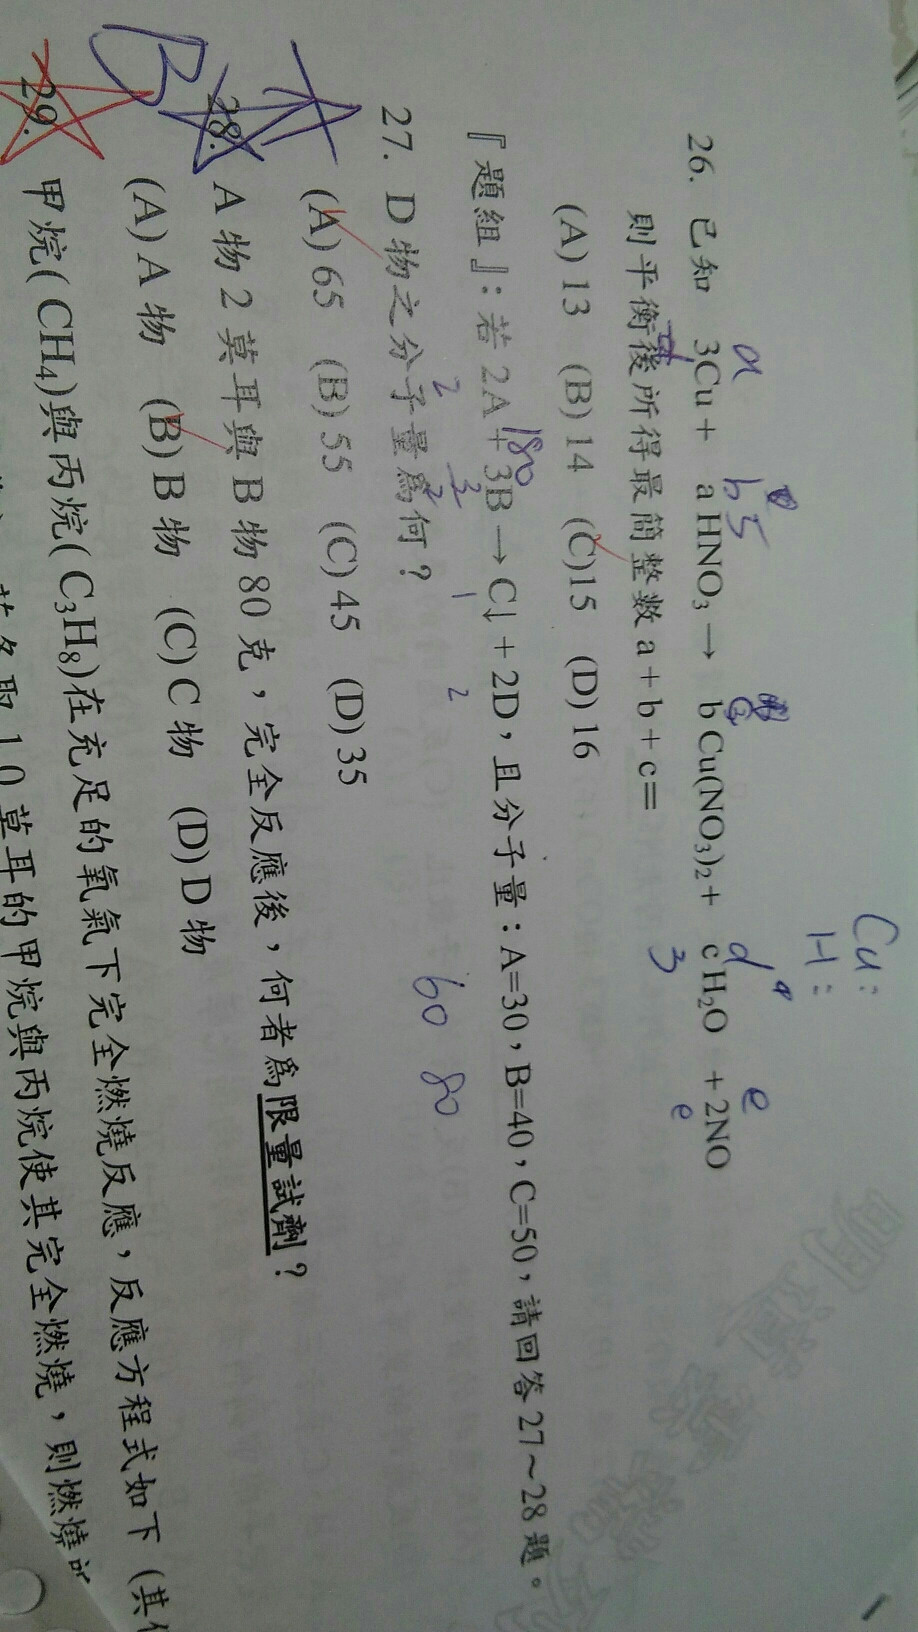 Cu:
H:
a b 5 d 4 e
26. 已知 3Cu + a HNO₃ → b Cu(NO₃)₂ + c H₂O + 2NO
3 e
則平衡後所得最簡整數 a + b + c =
(A) 13 (B) 14 (C)15 (D) 16
180
『題組』：若 2A + 3B → C↓ + 2D，且分子量：A=30，B=40，C=50，請回答 27～28 題。
2 3 1 2
60 80
27. D 物之分子量為何？
(A) 65 (B) 55 (C) 45 (D) 35
28. A 物 2 莫耳與 B 物 80 克，完全反應後，何者為限量試劑？
B
(A) A 物 (B) B 物 (C) C 物 (D) D 物
29. 甲烷( CH₄)與丙烷( C₃H₈)在充足的氧氣下完全燃燒反應，反應方程式如下（其
取 1.0 莫耳的甲烷與丙烷使其完全燃燒，則燃燒